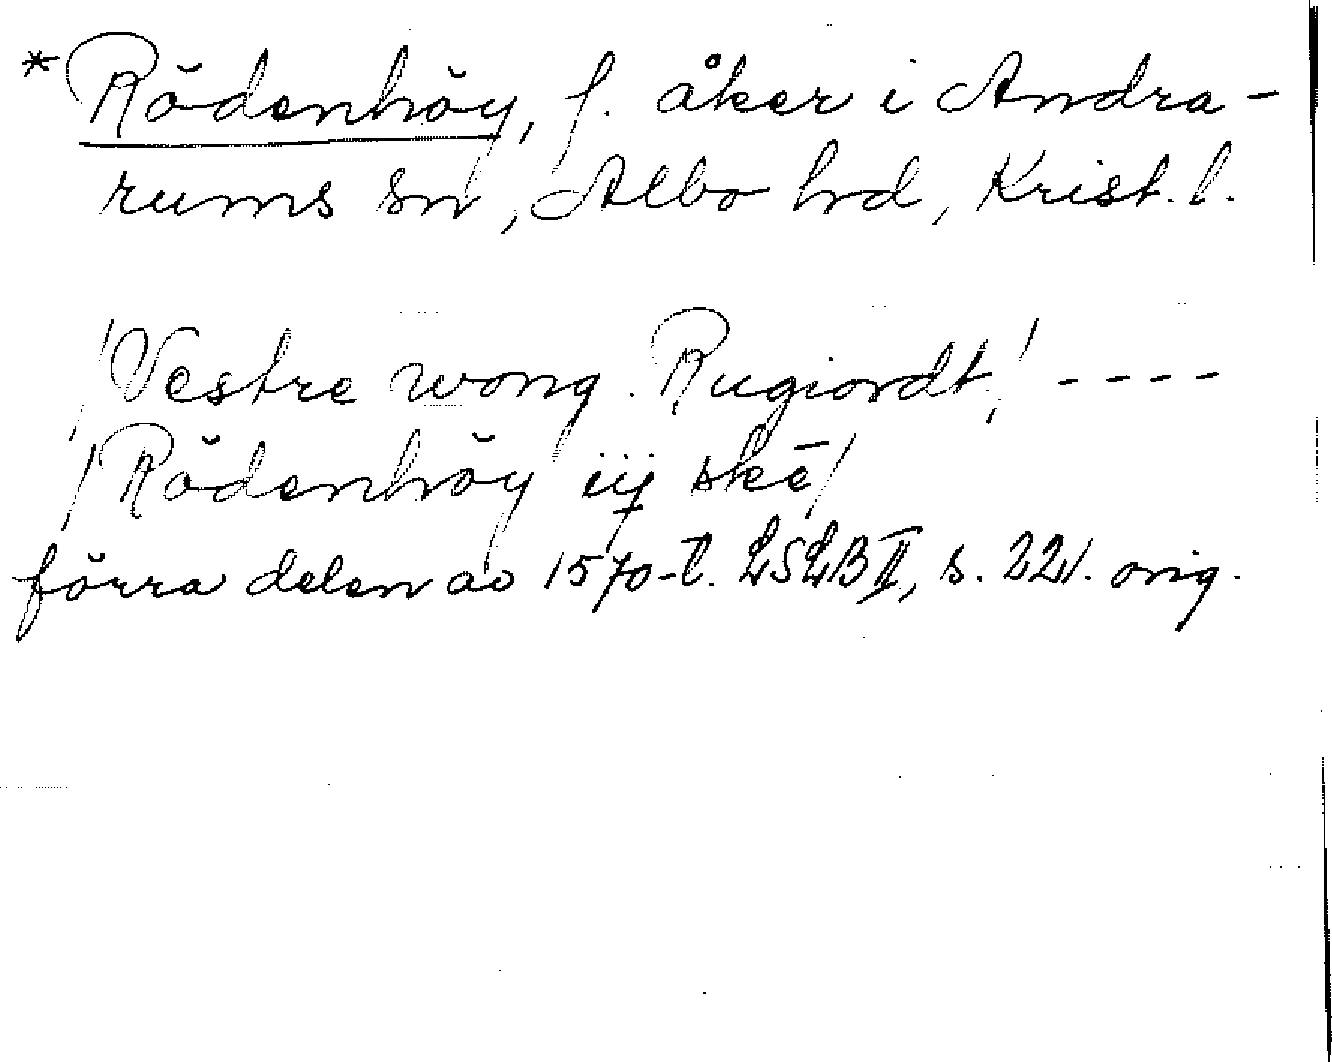 * Rödenhöy, f. åker i Andra-
rums sn, Albo hd, Krist. l.
/Vestre wong. Rugiordt/ ----
/Rödenhöy iij skē/
förra delen av 1570-t. LSLB II, s. 221. orig.